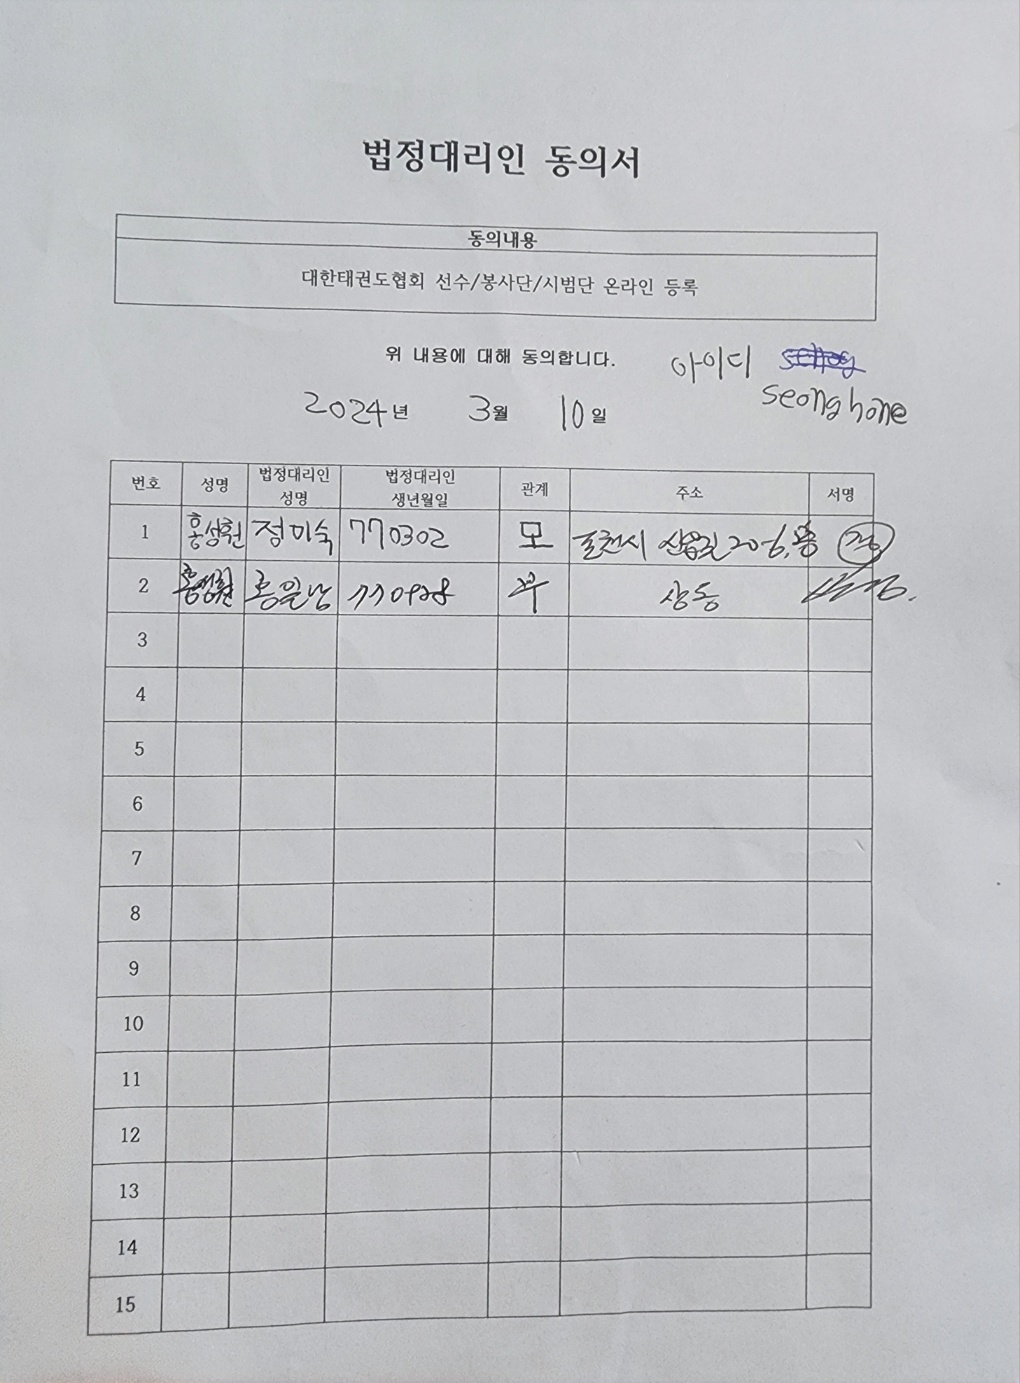 법정대리인 동의서
동의내용
대한태권도협회 선수/봉사단/시범단 온라인 등록
위 내용에 대해 동의합니다.
아이디
seonghone
2024년 3월 10일
번호 성명 법정대리인 성명 법정대리인 생년월일 관계 주소 서명
1 홍성훤 정미숙 770302 모 포천시
2 홍성훤 홍일남 770928 부 상동
3
4
5
6
7
8
9
10
11
12
13
14
15